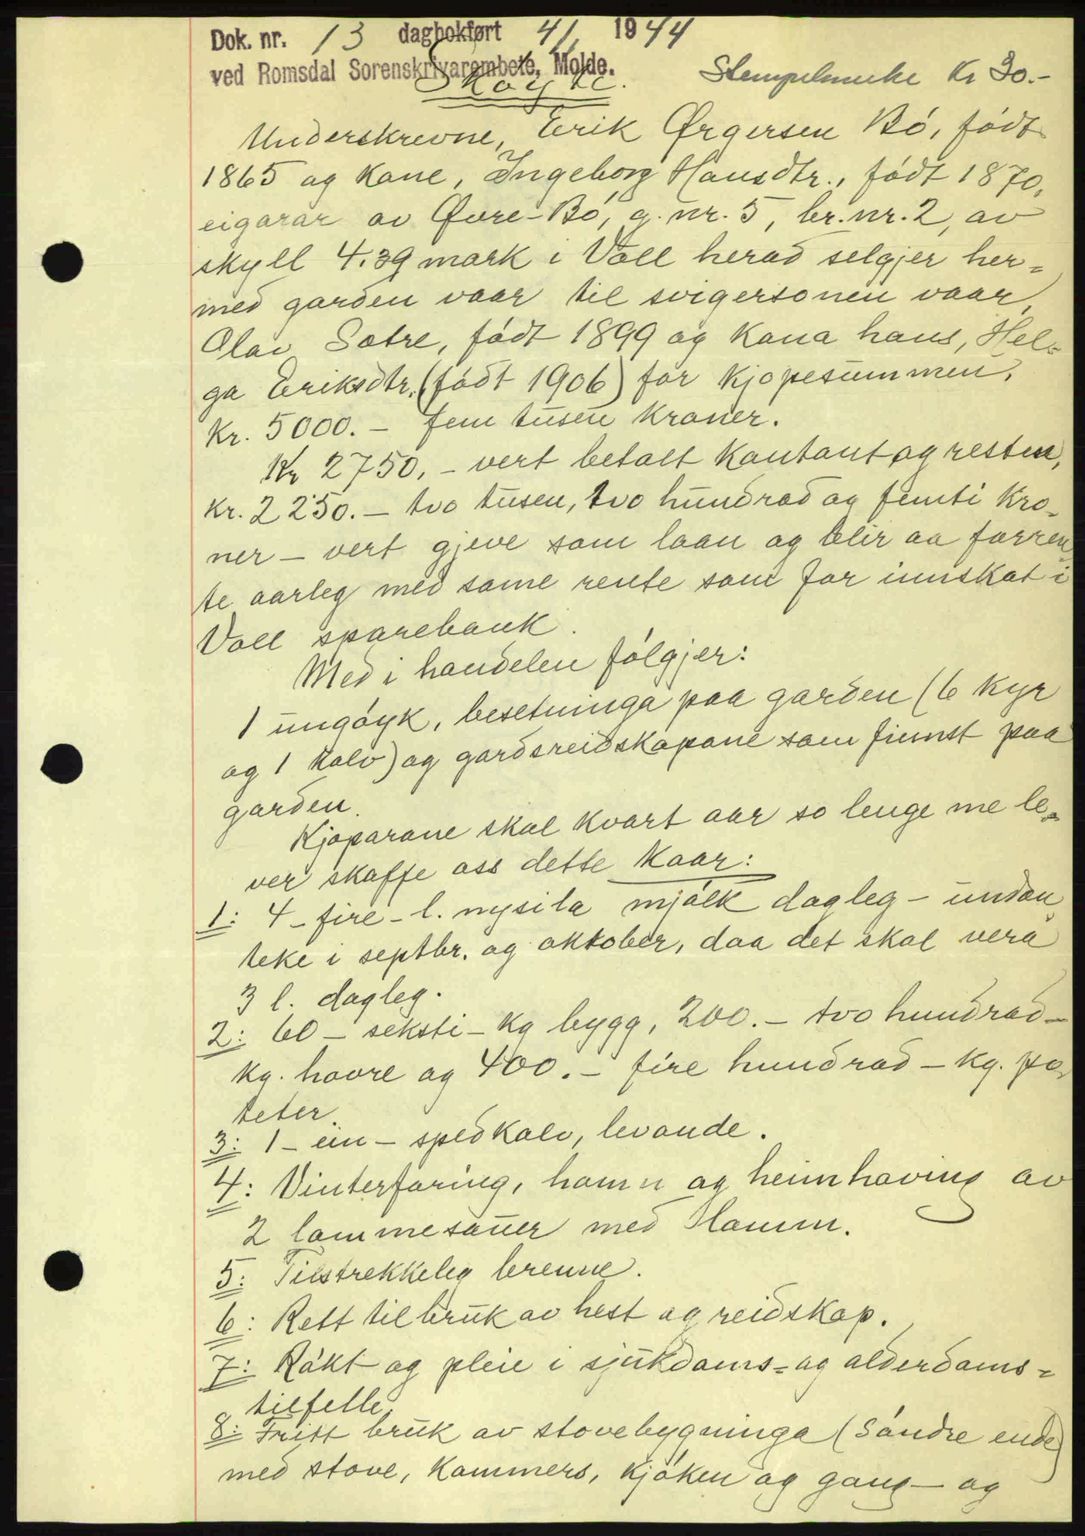 Dok. nr. 13 dagbokført 4/1 1944
ved Romsdal Sorenskrivarembete, Molde.
Skøyte. Stempelmerke Kr 30.-
Underskrevne, Erik Ørgersen Bó, født
1865 og Kone, Ingeborg Hansdtr., født 1870,
eigarar av Øvre-Bó, g. nr. 5, br. nr. 2, av
skyll 4.39 mark i Voll herad selgjer her=
med garden vaar til svigersonen vaar,
Olav Sætre, født 1899 og Kona hans, Hel=
ga Eriksdtr. (født 1906) for Kjøpesummen,
Kr. 5000.- fem tusen Kroner.
Kr 2750.- vert betalt Kontant og resten,
Kr. 2250.- tvo tusen, tvo hundrad og femti Kro-
ner - vert gjeve som laan og blir aa forren
te aarleg med same rente som for innskot i
Voll sparebank.
Med i handelen følgjer:
1 ungøyk, besetninga paa garden (6 Kyr
og 1 Kalv) og gardsreidskapane som finnst paa
garden.
Kjøparane skal kvart aar so lenge me le-
ver skaffe oss dette Kaar:
1: 4 - fire - l. nysila mjølk dagleg - undan
teke i septbr. og oktober, daa det skal vera
3 l. dagleg.
2: 60 - seksti - Kg bygg, 200.- tvo hundrad-
Kg. havre og 400.- fire hundrad - Kg. po-
teter.
3: 1 - ein - spedkalv, levande.
4: Vinterforing, hamn og heimhaving av
2 lammesauer med Lamm.
5: Tilstrekkeleg brenne.
6: Rett til bruk av hest og reidskap.
7: Røkt og pleie i sjukdoms= og alderdoms=
tilfelle.
8: Fritt bruk av stovebygninga (søndre ende)
med stove, Kammers, Kjøken og gang - og